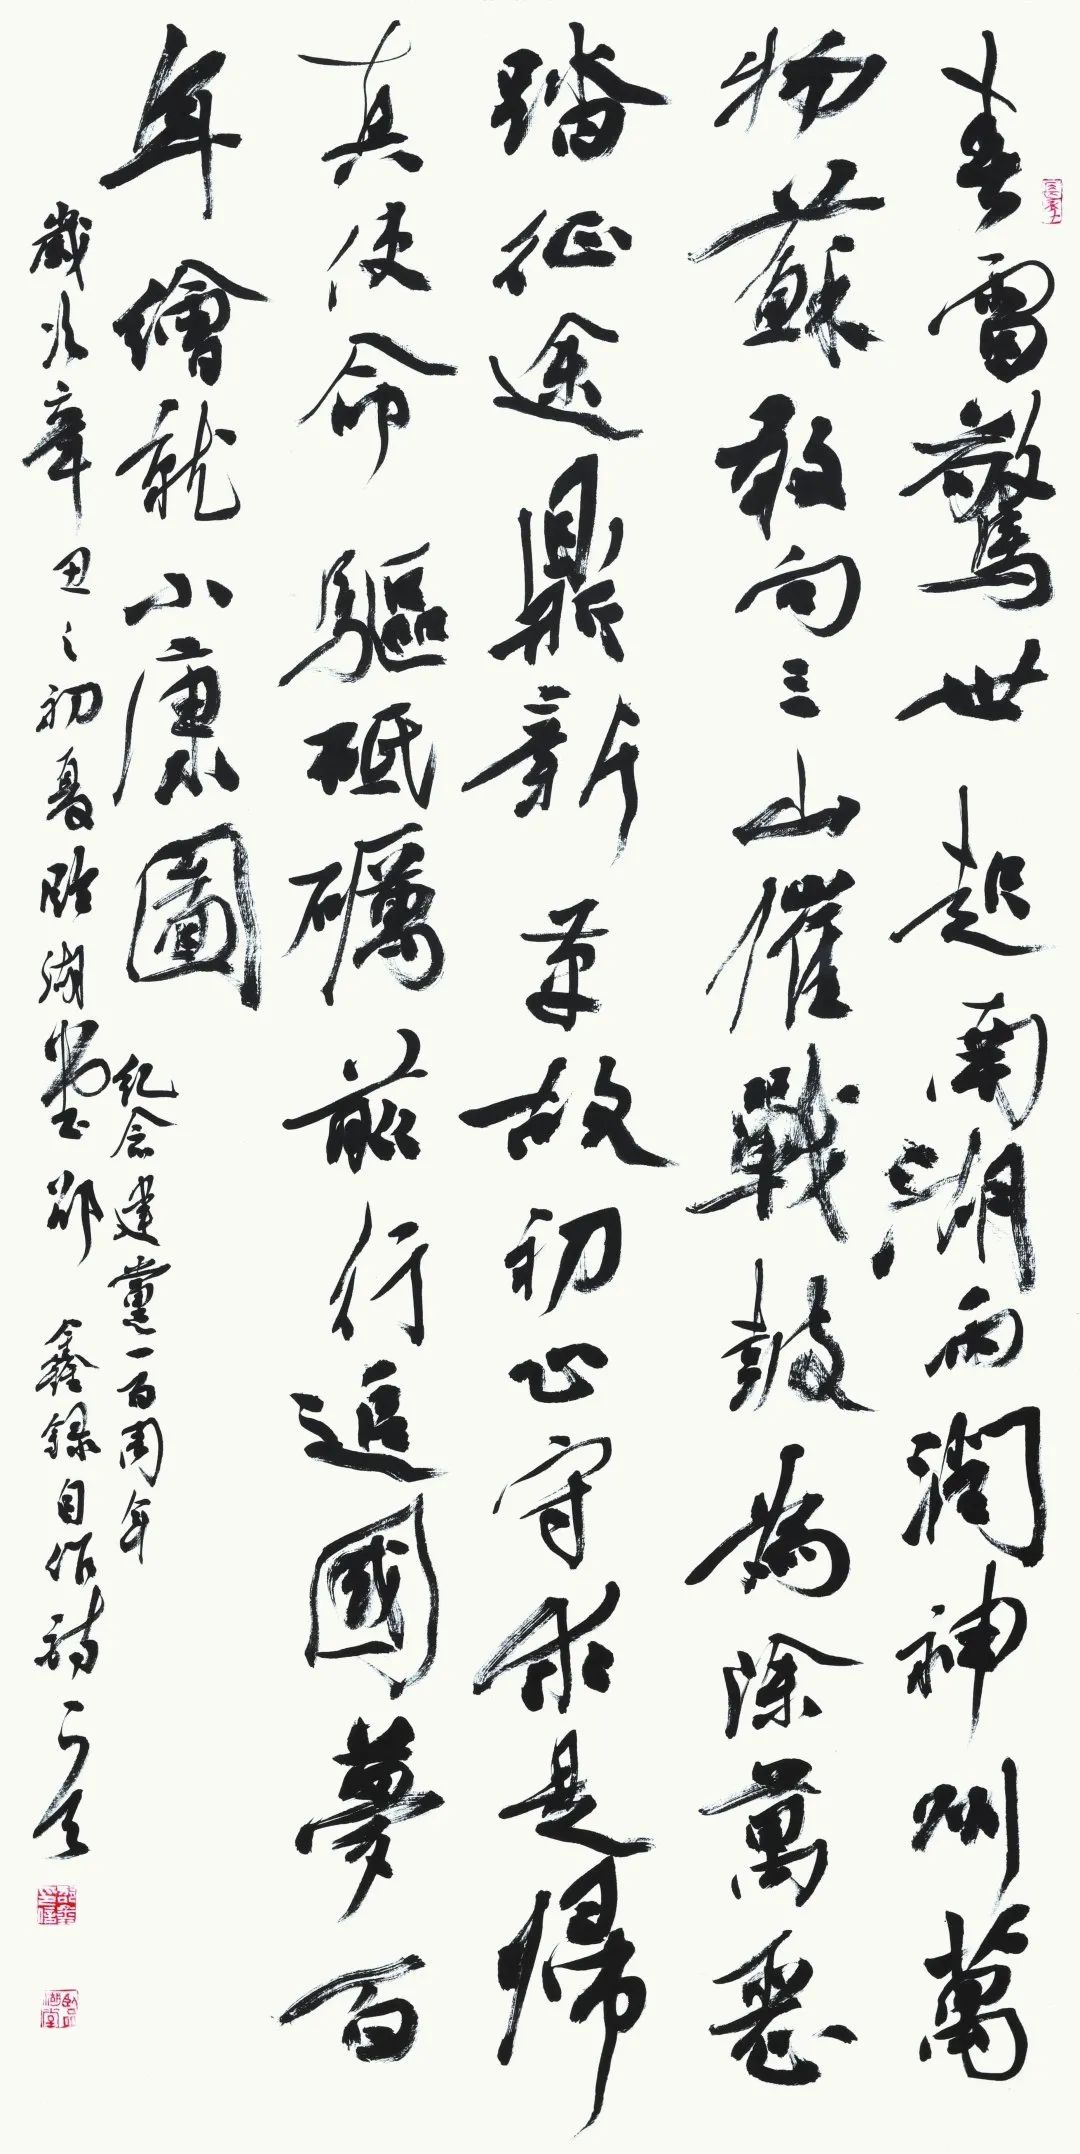 春雷驚世起南湖雨潤神州萬
物蘇敢向三山催戰鼓為除萬惡
踏征途鼎新革故初心守求是歸
真使命驅砥礪前行追國夢百
年繪就小康圖
紀念建黨一百周年
歲次辛丑之初夏臨湖堂邵鑫錄自作詩